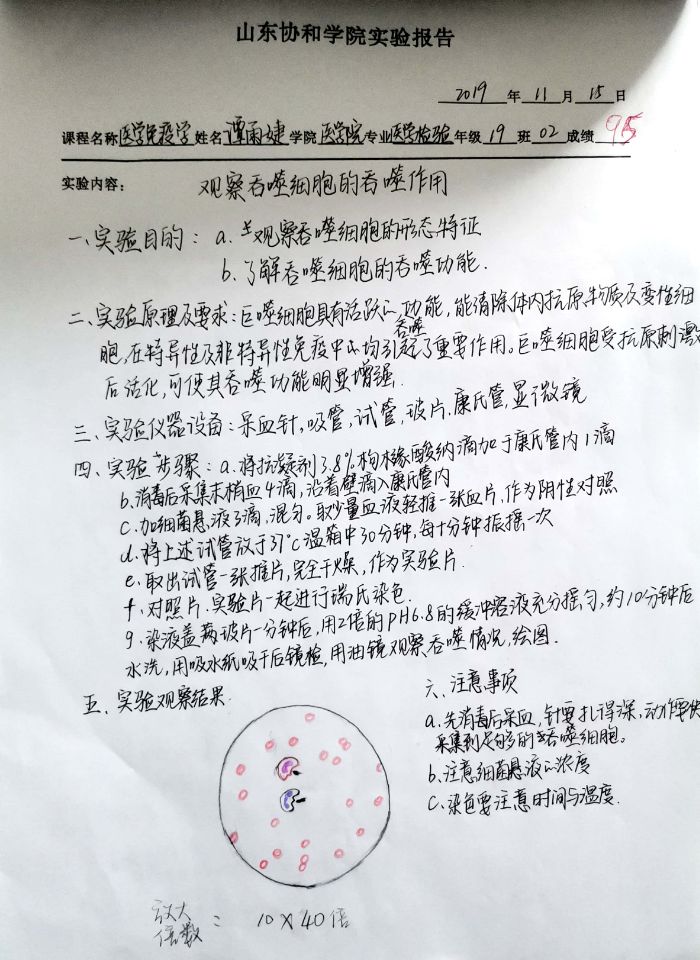 山东协和学院实验报告
2019 年 11 月 15 日
课程名称 医学免疫学 姓名 谭雨婕 学院 医学院 专业 医学检验 年级 19 班 02 成绩 95
实验内容： 观察吞噬细胞的吞噬作用
一、实验目的：a. 观察吞噬细胞的形态特征
b.了解吞噬细胞的吞噬功能.
二、实验原理及要求：巨噬细胞具有活跃的吞噬功能，能清除体内抗原物质及变性细
胞，在特异性及非特异性免疫中均引起了重要作用。巨噬细胞受抗原刺激
后活化，可使其吞噬功能明显增强.
三、实验仪器设备：采血针，吸管，试管，玻片，康氏管，显微镜
四、实验步骤：a.将抗凝剂3.8%枸橼酸钠滴加于康氏管内1滴
b.消毒后采集末梢血4滴，沿着壁滴入康氏管内
c.加细菌悬液3滴，混匀。取少量血液轻推一张血片，作为阴性对照
d.将上述试管放于37°C温箱中30分钟，每十分钟振摇一次
e.取出试管一张推片，完全干燥，作为实验片.
f.对照片.实验片一起进行瑞氏染色.
g.染液盖满玻片一分钟后，用2倍的pH6.8的缓冲溶液充分摇匀，约10分钟后
水洗，用吸水纸吸干后镜检，用油镜观察吞噬情况，绘图.
五、实验观察结果.
六、注意事项
a.先消毒后采血，针要扎得深，动作要快
采集到足够的吞噬细胞。
b.注意细菌悬液的浓度
c.染色要注意时间与温度.
放大
倍数 ： 10×40倍